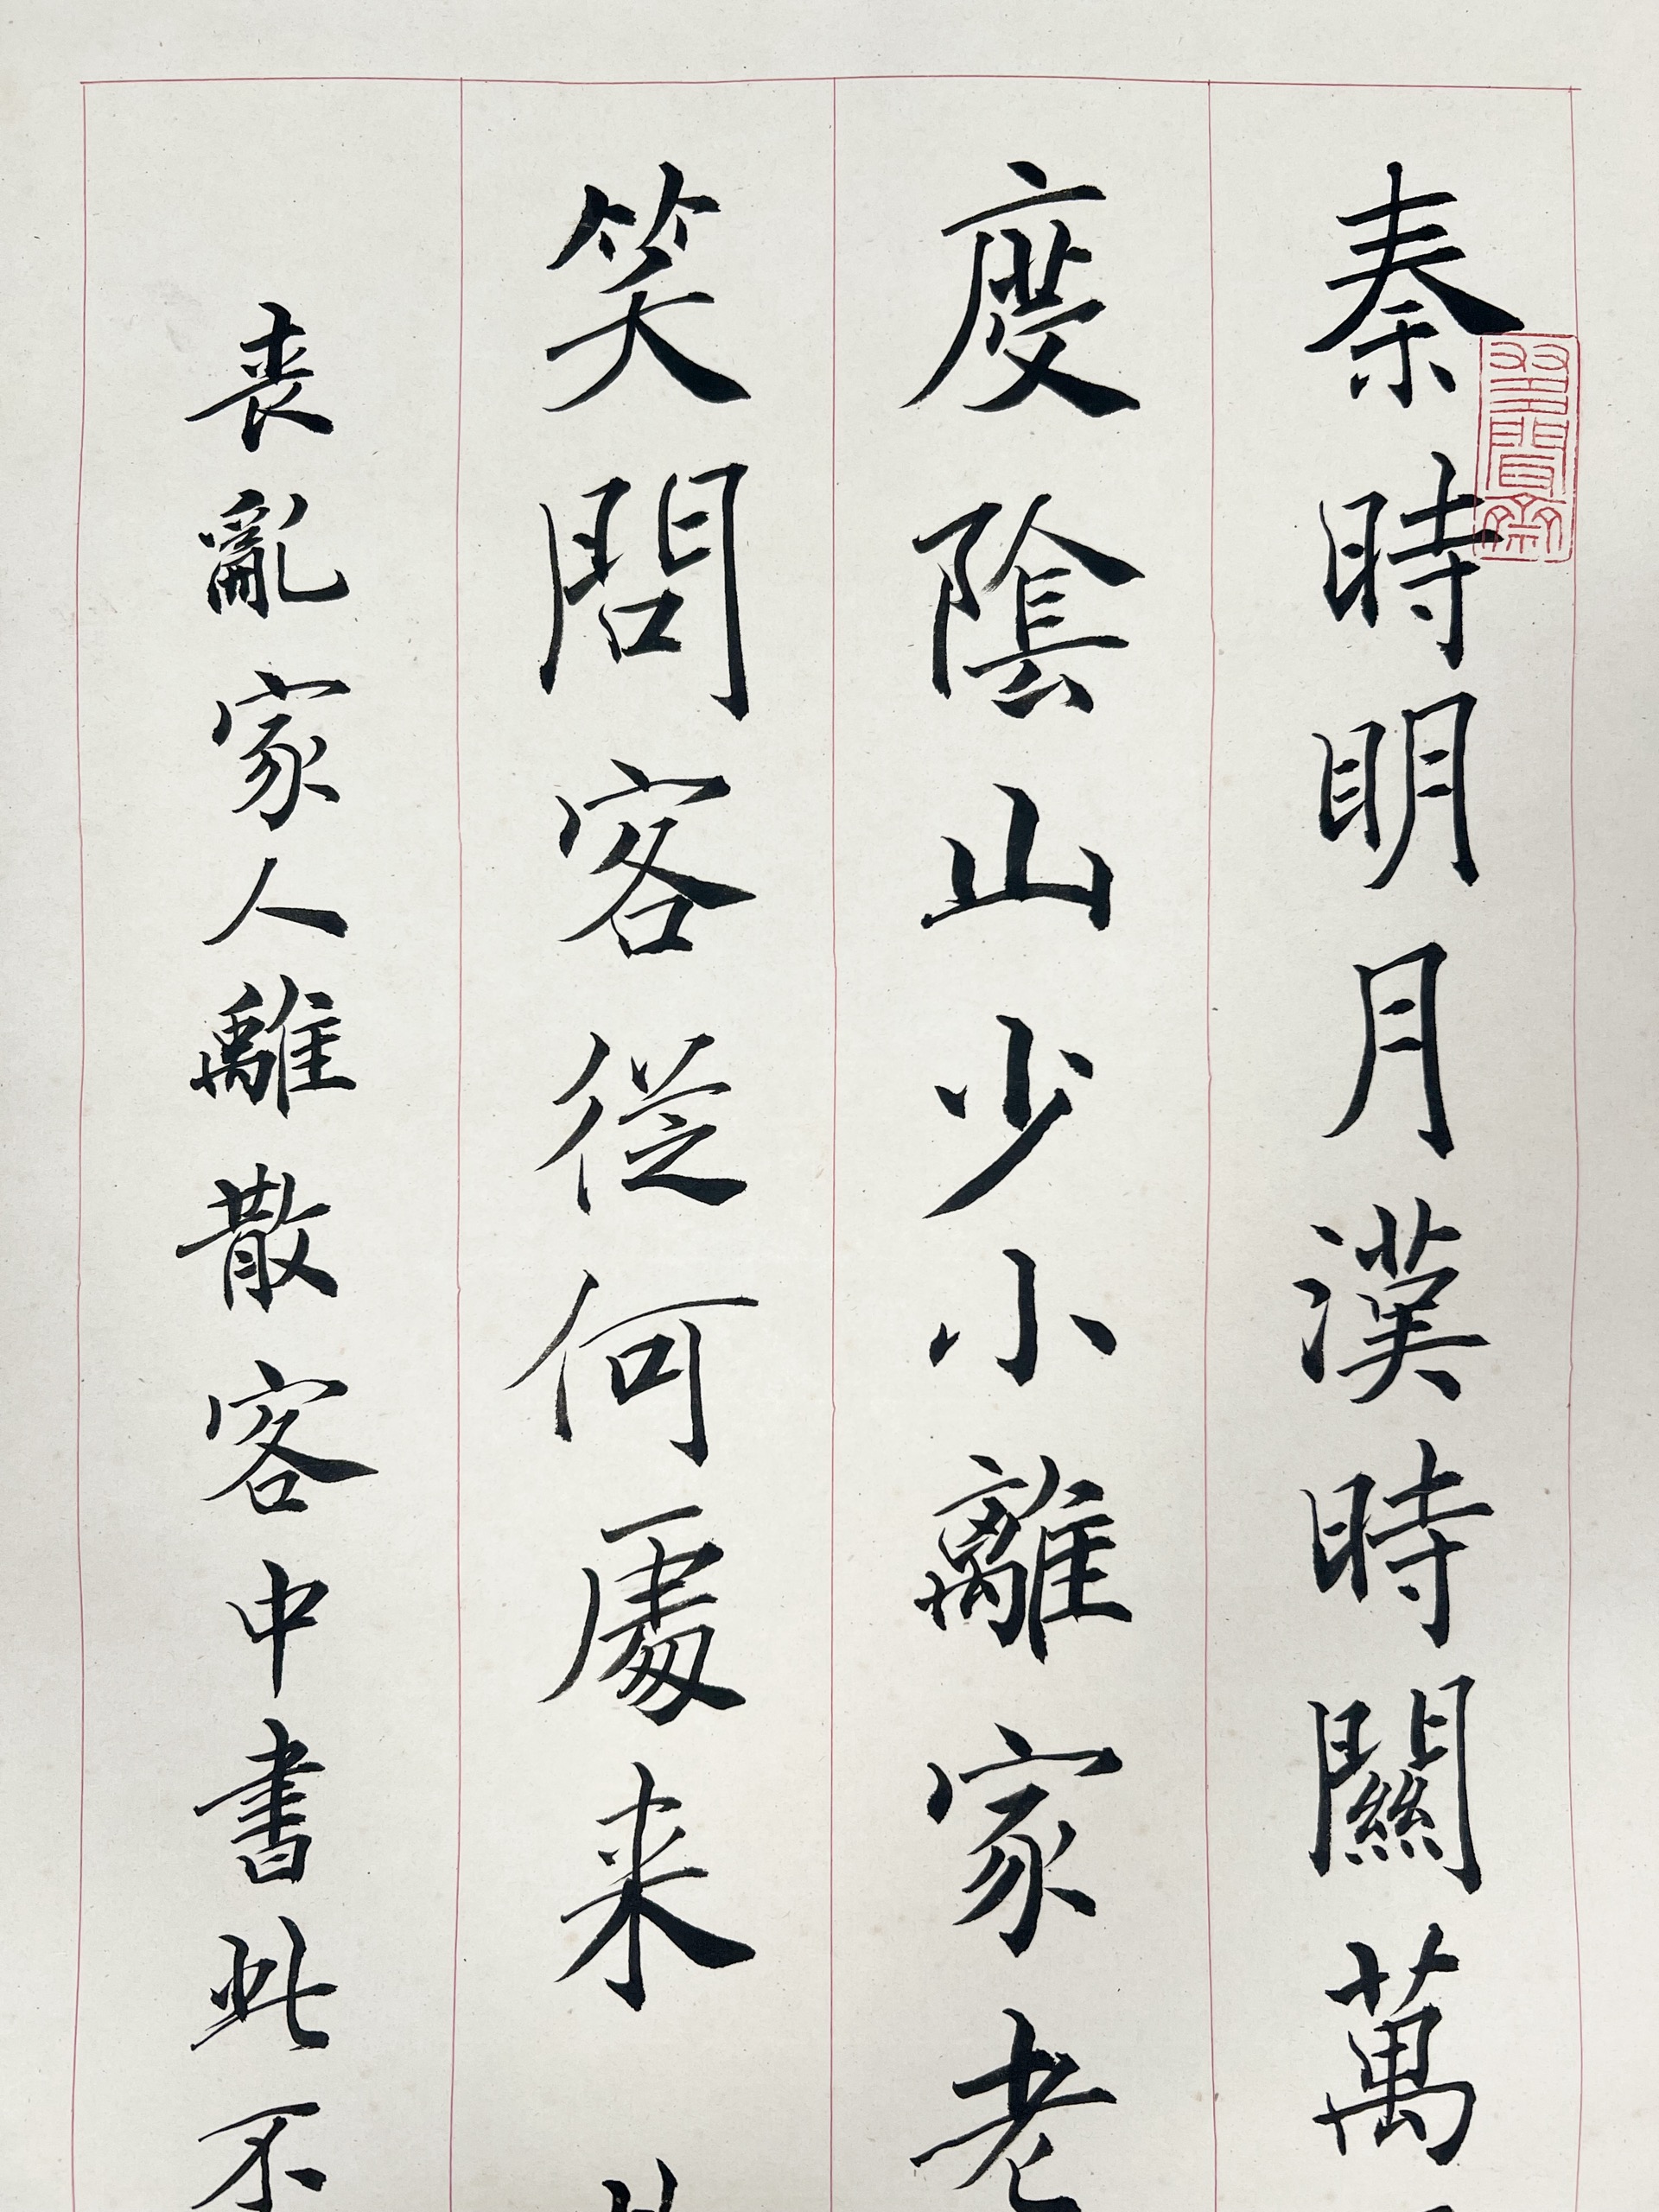 秦時明月漢時關萬
度陰山少小離家老
笑問客從何處来
喪亂家人離散客中書此不